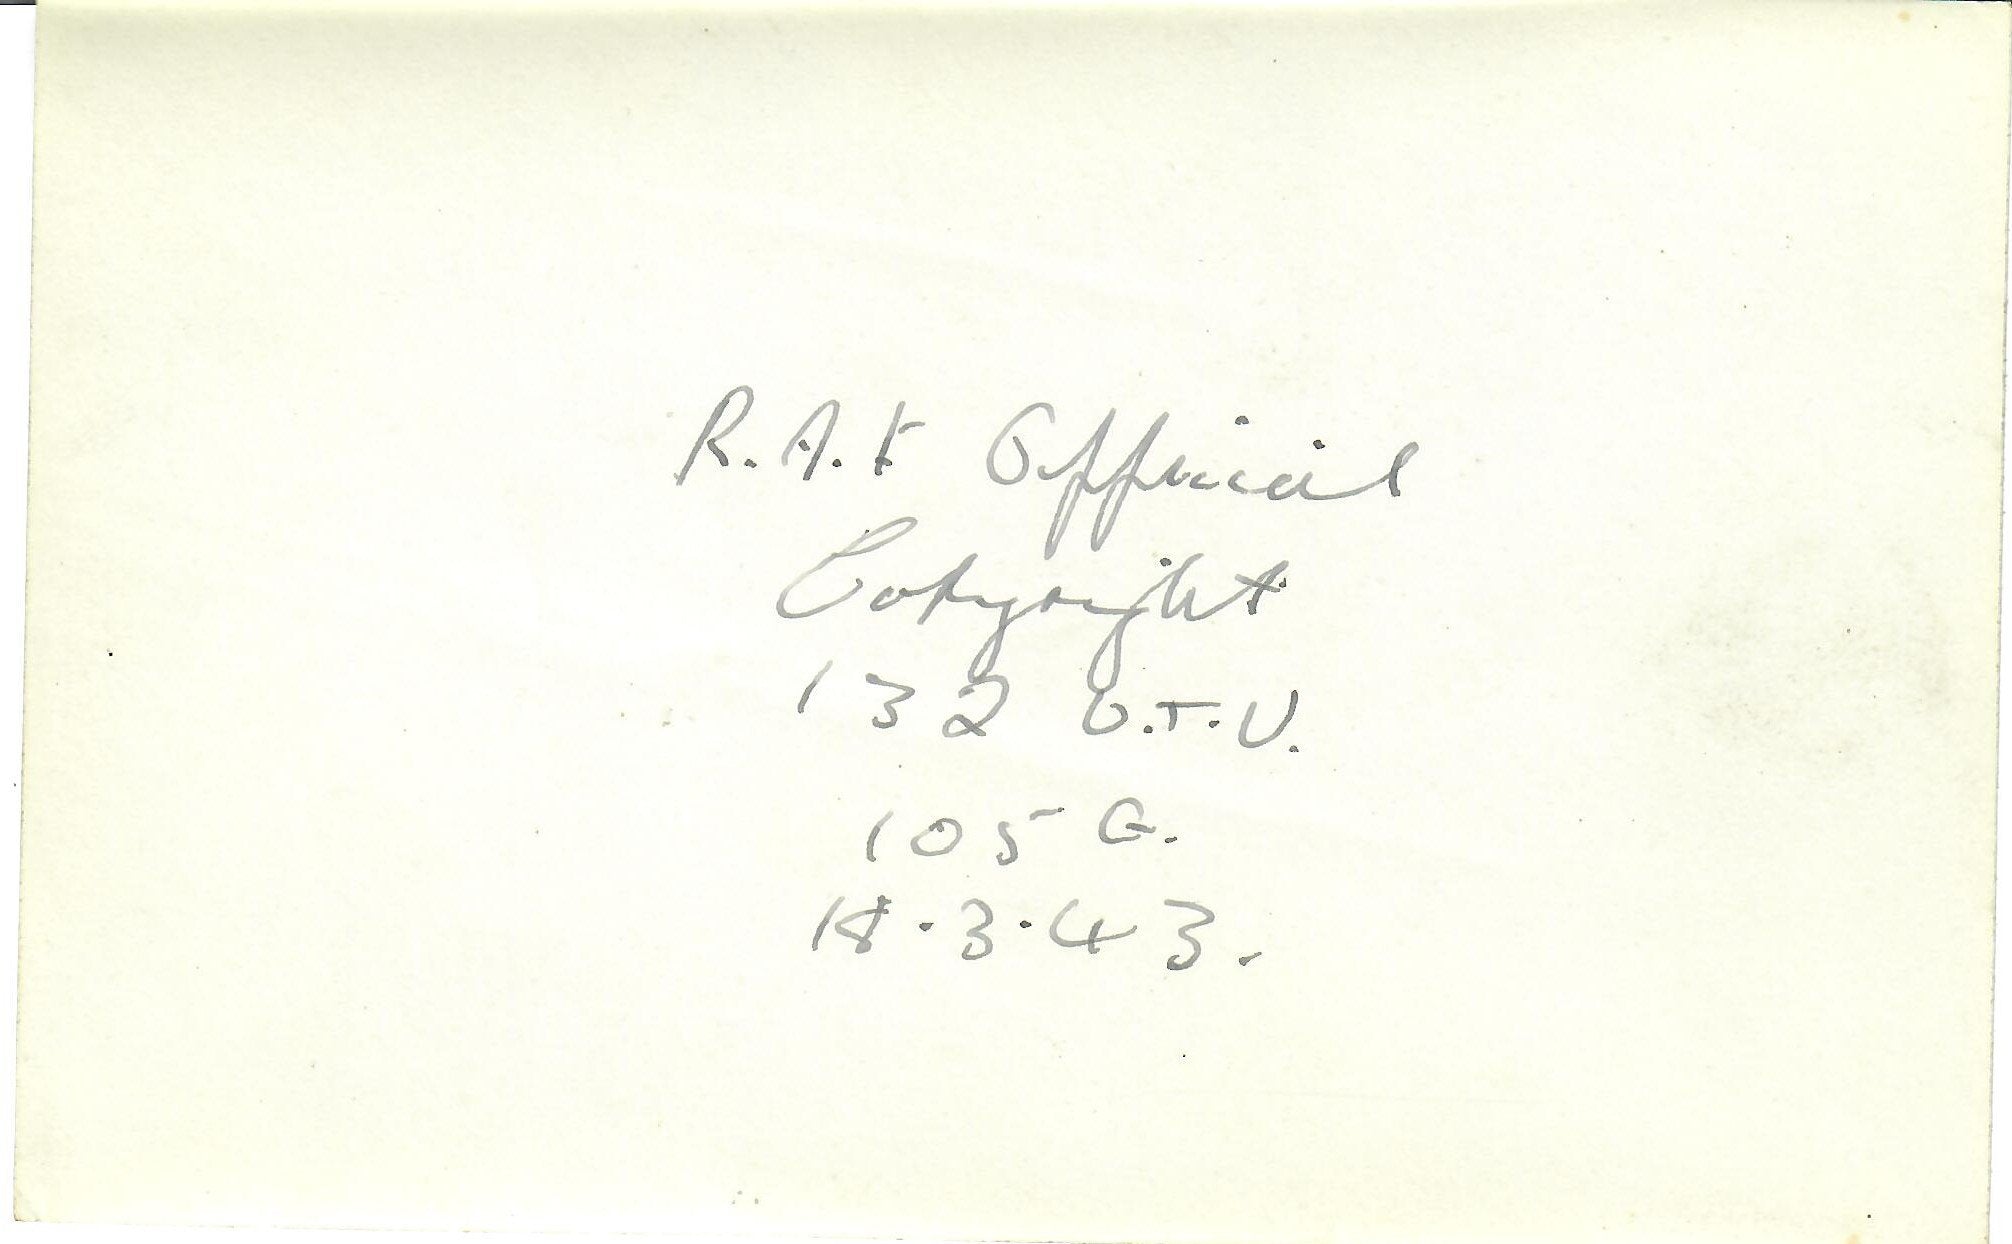 R.A.F Official
Copyright
132 O.T.U.
105 G.
18.3.43.